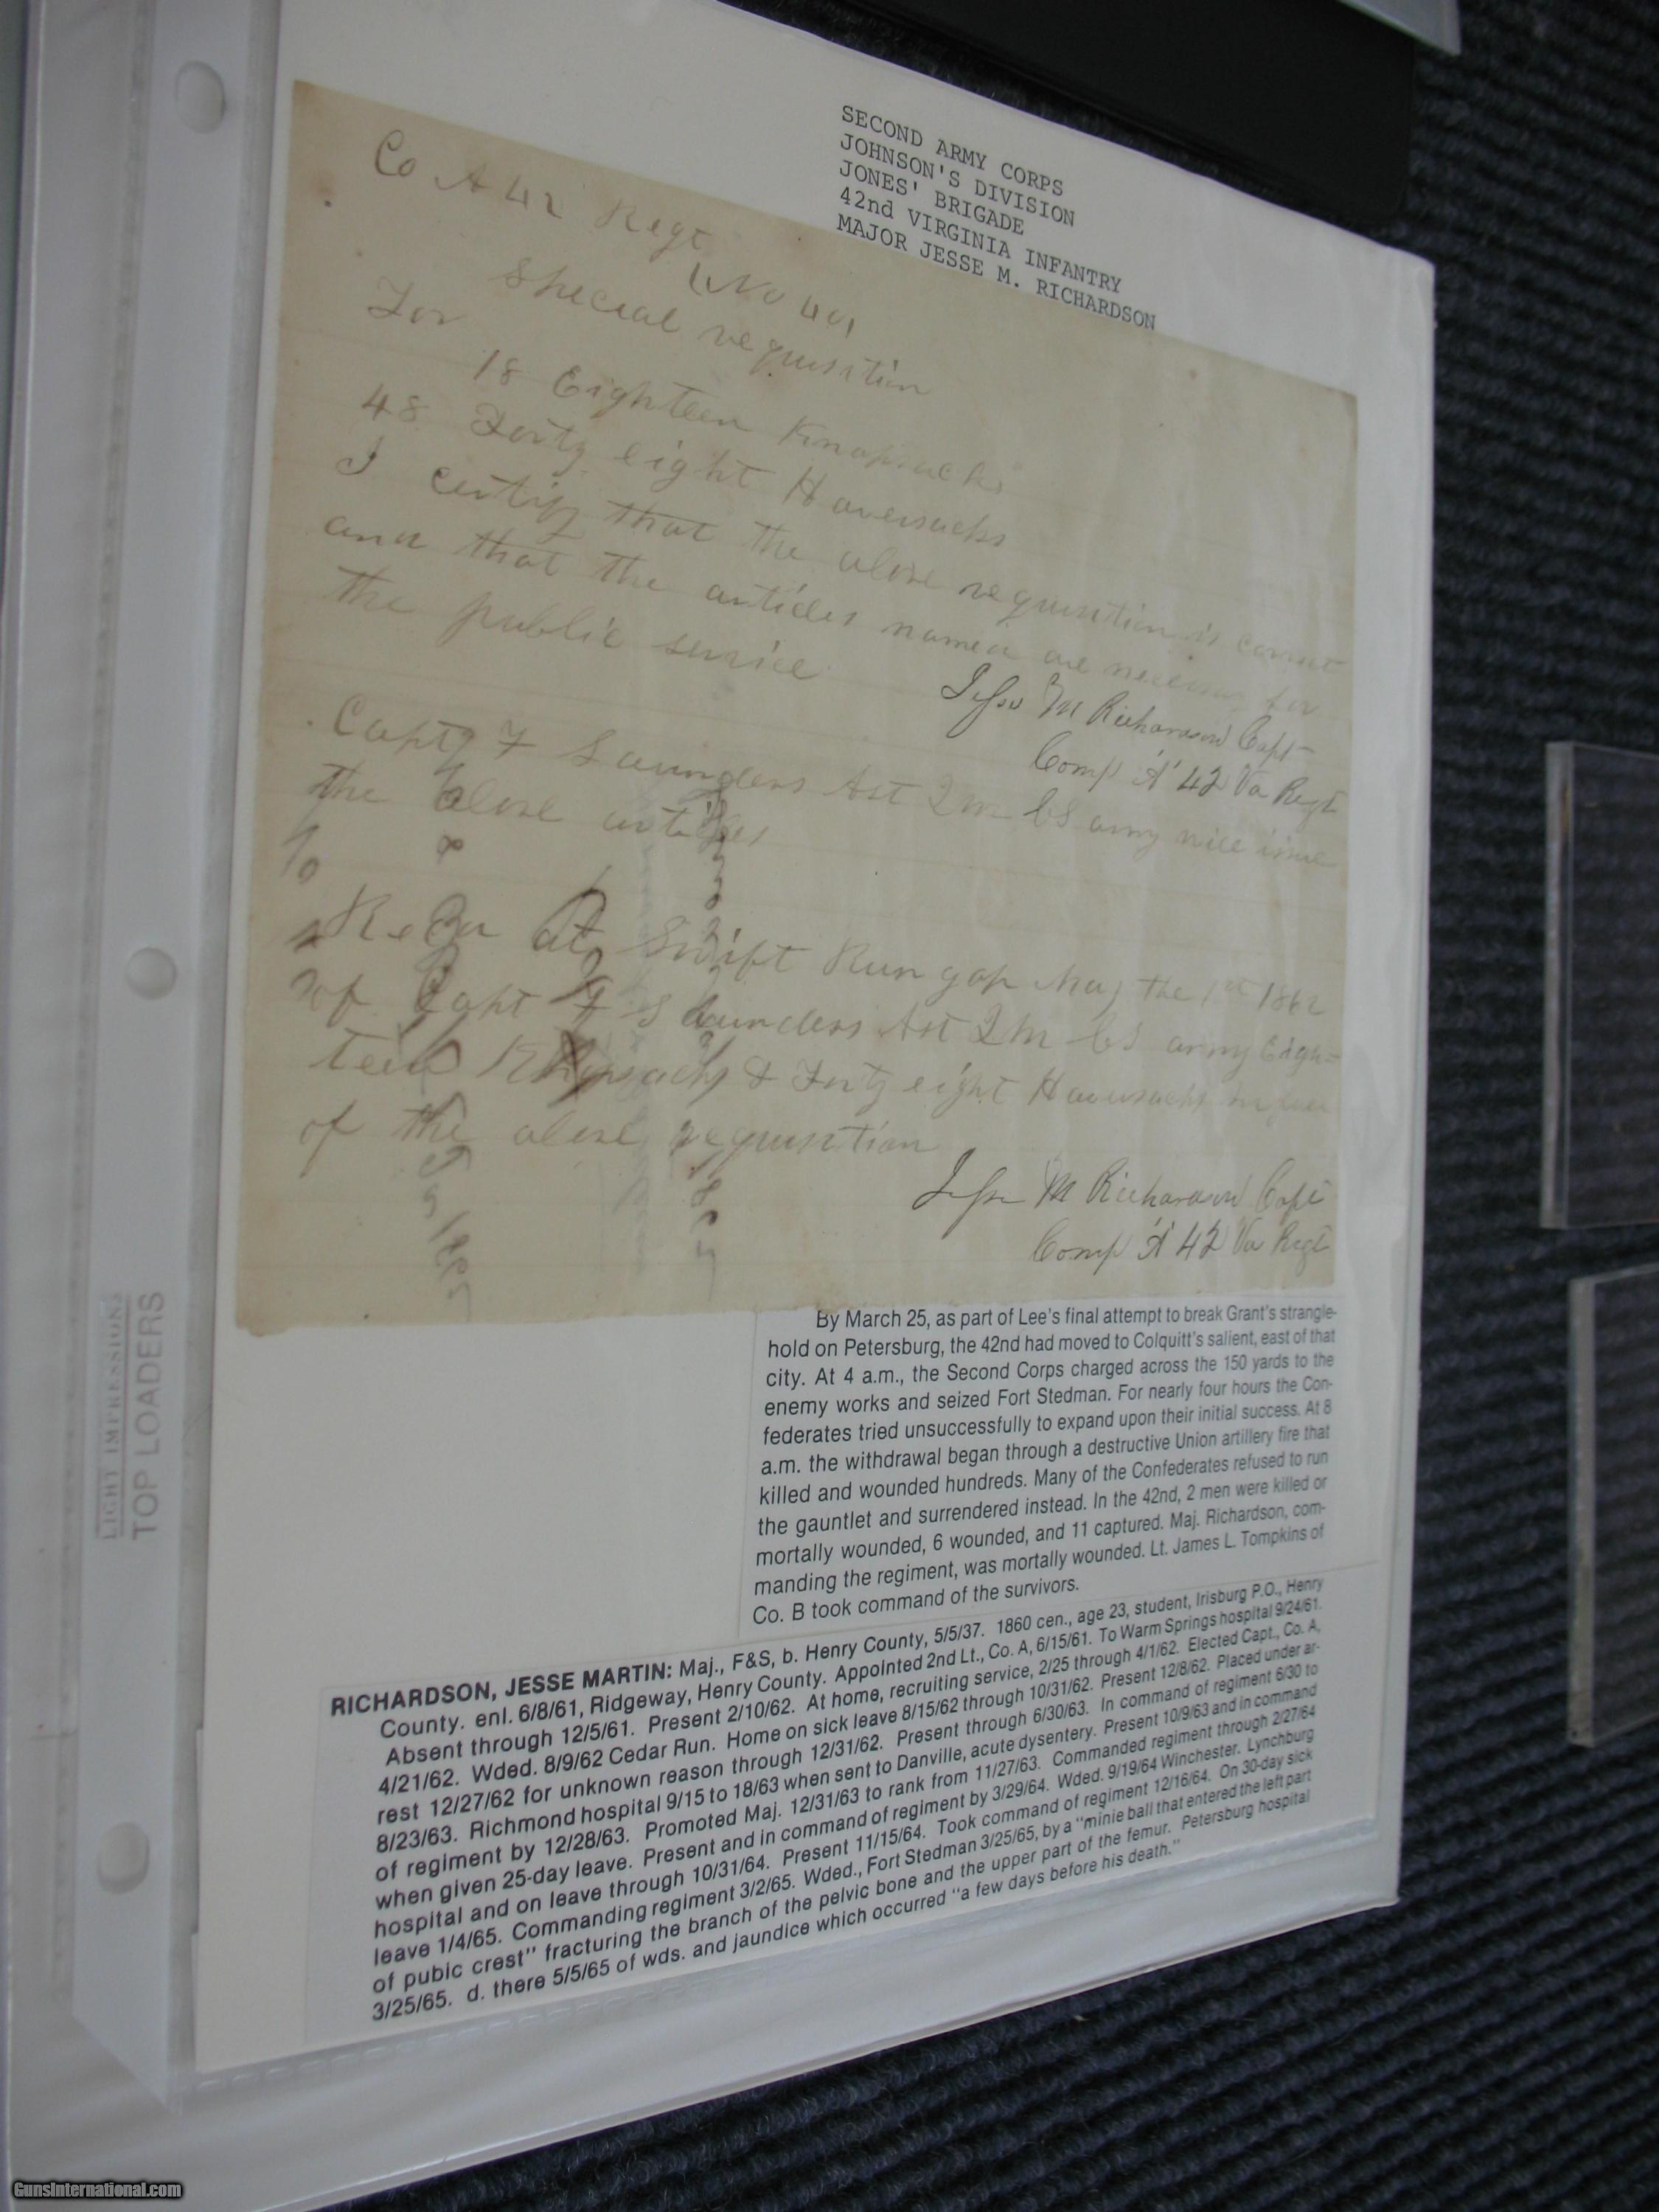 SECOND ARMY CORPS
JOHNSON'S DIVISION
JONES' BRIGADE
42nd VIRGINIA INFANTRY
MAJOR JESSE M. RICHARDSON
Co A 42 Regt
(No 40)
Special requisition
For
18 Eighteen Knapsacks
48 Forty eight Haversacks
I certify that the above requisition is correct
and that the articles named are necessary for
the public service
Jesse M Richardson Capt
Comp "A" 42 Va Regt
Capt F Saunders Ast QM CS army will issue
the above articles
Recd at Swift Run gap May the 1st 1862
of Capt F Saunders Ast QM CS army Eigh-
teen Knapsacks & Forty eight Haversacks in full
of the above requisition
Jesse M Richardson Capt
Comp "A" 42 Va Regt
By March 25, as part of Lee's final attempt to break Grant's strangle-
hold on Petersburg, the 42nd had moved to Colquitt's salient, east of that
city. At 4 a.m., the Second Corps charged across the 150 yards to the
enemy works and seized Fort Stedman. For nearly four hours the Con-
federates tried unsuccessfully to expand upon their initial success. At 8
a.m. the withdrawal began through a destructive Union artillery fire that
killed and wounded hundreds. Many of the Confederates refused to run
the gauntlet and surrendered instead. In the 42nd, 2 men were killed or
mortally wounded, 6 wounded, and 11 captured. Maj. Richardson, com-
manding the regiment, was mortally wounded. Lt. James L. Tompkins of
Co. B took command of the survivors.
RICHARDSON, JESSE MARTIN: Maj., F&S, b. Henry County, 5/5/37. 1860 cen., age 23, student, Irisburg P.O., Henry
County. enl. 6/8/61, Ridgeway, Henry County. Appointed 2nd Lt., Co. A, 6/15/61. To Warm Springs hospital 9/24/61.
Absent through 12/5/61. Present 2/10/62. At home, recruiting service, 2/25 through 4/1/62. Elected Capt., Co. A,
4/21/62. Wded. 8/9/62 Cedar Run. Home on sick leave 8/15/62 through 10/31/62. Present 12/8/62. Placed under ar-
rest 12/27/62 for unknown reason through 12/31/62. Present through 6/30/63. In command of regiment 6/30 to
8/23/63. Richmond hospital 9/15 to 18/63 when sent to Danville, acute dysentery. Present 10/9/63 and in command
of regiment by 12/28/63. Promoted Maj. 12/31/63 to rank from 11/27/63. Commanded regiment through 2/27/64
when given 25-day leave. Present and in command of regiment by 3/29/64. Wded. 9/19/64 Winchester. Lynchburg
hospital and on leave through 10/31/64. Present 11/15/64. Took command of regiment 12/16/64. On 30-day sick
leave 1/4/65. Commanding regiment 3/2/65. Wded., Fort Stedman 3/25/65, by a "minie ball that entered the left part
of pubic crest" fracturing the branch of the pelvic bone and the upper part of the femur. Petersburg hospital
3/25/65. d. there 5/5/65 of wds. and jaundice which occurred "a few days before his death."
LIGHT IMPRESSIONS
TOP LOADERS
GunsInternational.com